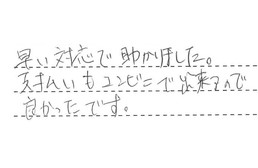 早い対応で助かりました。
支払いもコンビニで出来るので
良かったです。